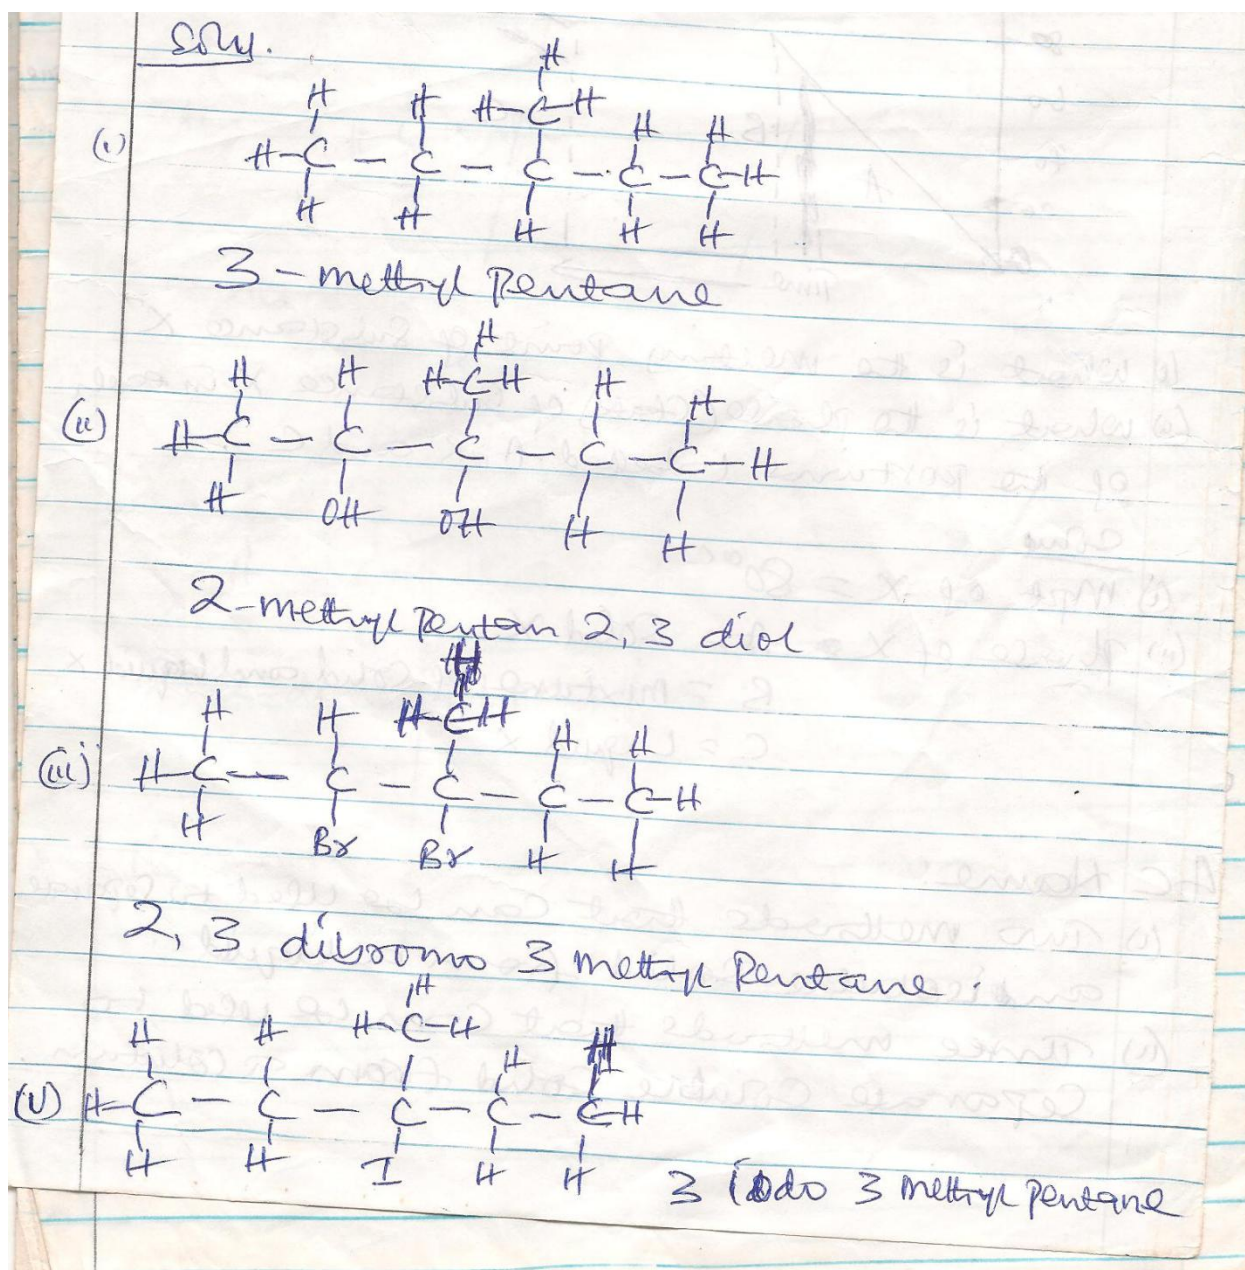 Soln.
H
H H H-C-H H H
(i) H-C - C - C - C - C-H
H H H H H
3 - methyl Pentane
H
H H H-C-H H H
(ii) H-C - C - C - C - C-H
H OH OH H H
2-methyl Pentan 2, 3 diol
H
H H H-C-H H H
(iii) H-C - C - C - C - C-H
H Br Br H H
2, 3 dibromo 3 methyl Pentane.
H
H H H-C-H H H
(v) H-C - C - C - C - C-H
H H I H H
3 iodo 3 methyl pentane